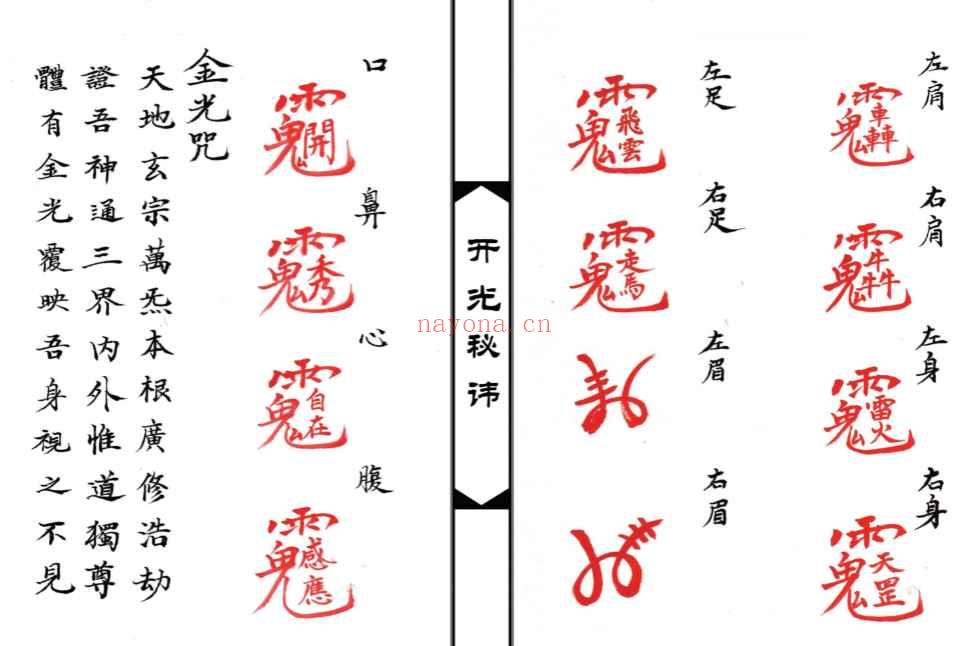 左肩
雨鬼轟
右肩
雨鬼犇
左身
雨鬼雷火
右身
雨鬼天罡
左足
雨鬼飛雲
右足
雨鬼走馬
左眉
右眉
开光秘讳
口
雨鬼開
鼻
雨鬼秀
心
雨鬼自在
腹
雨鬼感應
金光咒
天地玄宗萬炁本根廣修浩劫
證吾神通三界內外惟道獨尊
體有金光覆映吾身視之不見
nayona.cn